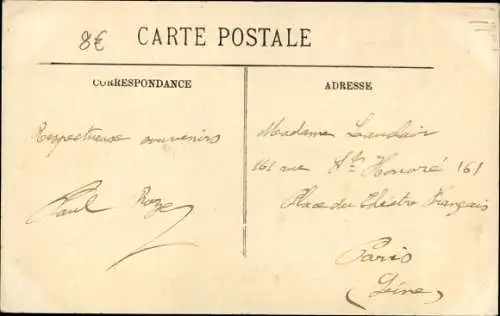 8€
CARTE POSTALE
CORRESPONDANCE
Respectueux souvenirs
Paul Roze
ADRESSE
Madame Landair
161 rue St Honoré 161
Place du Théâtre Français
Paris
(Seine)